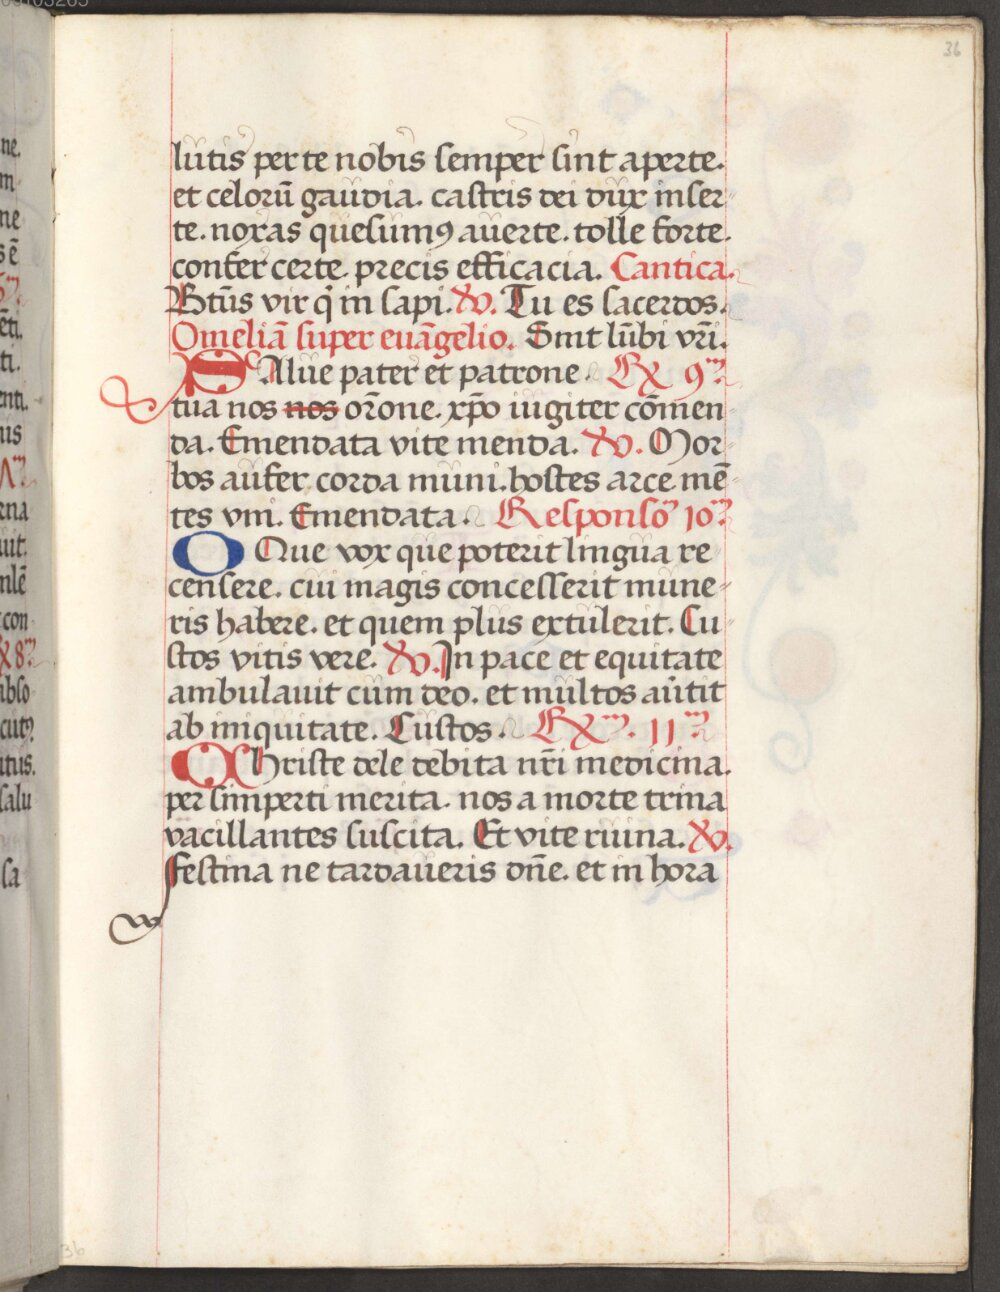 36
lutis per te nobis semper sint aperte.
et celorū gaudia. castris dei dux inser
te. noxas quesumꝰ auerte. tolle forte.
confer certe. precis efficacia. Cantica.
Btūs vir q̄ in sapi. ℣. Tu es sacerdos.
Omeliā super euāgelio. Sint lūbi vr̄i.
SAlue pater et patrone. ℞ 9ᵐ
tua nos nos or̄one. xp̄o iugiter cōmen
da. Emendata vite menda. ℣. Mor
bos aufer corda muni. hostes arce mē
tes vni. Emendata. Responsoᵐ 10ᵐ
O Que vox que poterit lingua re
censere. cui magis concesserit mune
ris habere. et quem plus extulerit. Cu
stos vitis vere. ℣. In pace et equitate
ambulauit cum deo. et multos au̅tit
ab iniquitate. Custos. ℞ᵐ. 11ᵐ
CHriste dele debita nr̄i medicina.
per simperti merita. nos a morte trina
vacillantes suscita. Et vite riuina. ℣.
Festina ne tardaueris dn̄e. et in hora
36